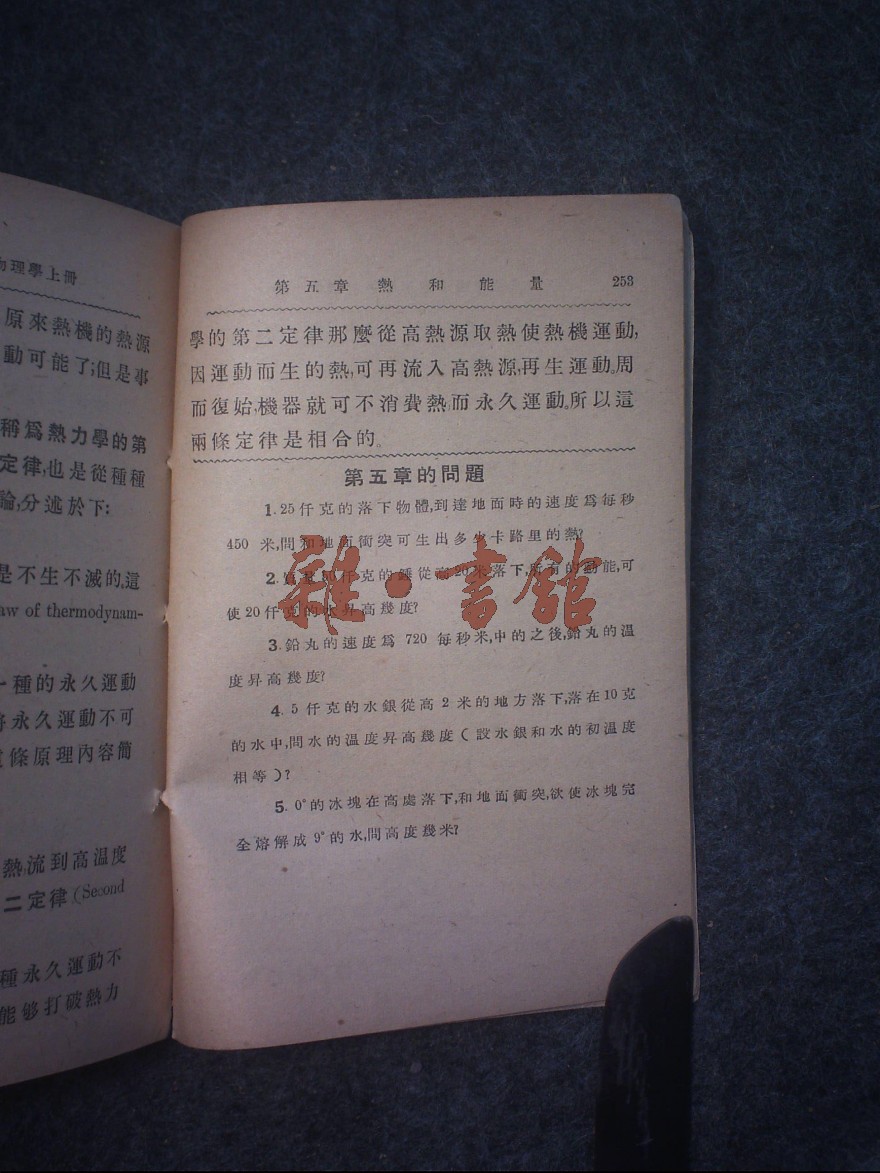 物理學上冊
原來熱機的熱源
動可能了;但是事
稱爲熱力學的第
定律,也是從種種
論,分述於下:
是不生不滅的。這
aw of thermodynam-
一種的永久運動
將永久運動不可
條原理內容簡
熱,流到高温度
二定律(Second
種永久運動不
能够打破熱力
第五章 熱和能量 253
學的第二定律那麼從高熱源取熱使熱機運動,
因運動而生的熱,可再流入高熱源,再生運動。周
而復始,機器就可不消費熱,而永久運動。所以這
兩條定律是相合的。
第五章的問題
1. 25仟克的落下物體,到達地面時的速度爲每秒
450 米,問和地面衝突可生出多少卡路里的熱?
2. 質量50仟克的錘從高20米落下,所有的動能,可
使20仟克的水昇高幾度?
3. 鉛丸的速度爲 720 每秒米,中的之後,鉛丸的温
度昇高幾度?
4. 5 仟克的水銀從高 2 米的地方落下,落在10克
的水中,問水的温度昇高幾度(設水銀和水的初温度
相等)?
5. 0°的冰塊在高處落下,和地面衝突,欲使冰塊完
全熔解成 9°的水,問高度幾米?
雜·書館